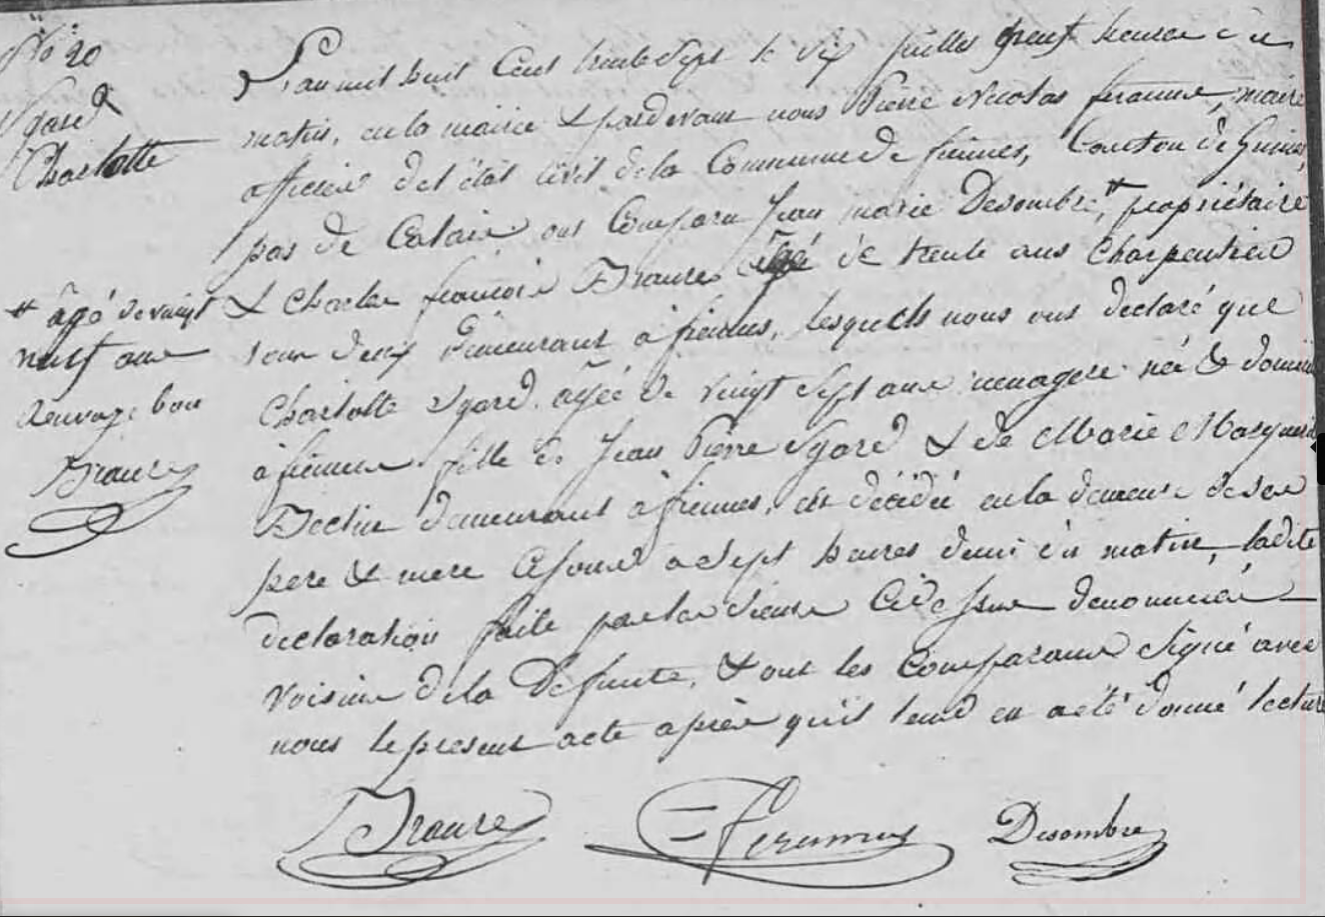 N° 20
Ygard
Charlotte
L'an mil huit Cent trente sept le dix juillet neuf heures du
matin, en la mairie & pardevant nous Pierre Nicolas maire
officier de l'état civil de la Commune de fiennes, Canton de Guines,
pas de Calais ont Comparu Jean marie Desombre, # propriétaire
& Charles françois Braure âgé de trente ans Charpentier
tous deux demeurant à fiennes, lesquels nous ont declaré que
Charlotte Ygard, agée de vingt sept ans menagere née & domi
à fiennes fille de Jean Pierre Ygard & de Marie
demeurant à fiennes, est décidé en la demeure de ses
pere & mere Ce jourd a sept heures demi du matin, ladite
déclaration faite par les sieurs Ci dessus denommés
voisins de la Défunte, & ont les Comparans signé avec
nous le present acte après qu'il leur en a été donné lecture
# âgé de vingt
neuf ans
renvoye bon
Braure
Braure
Desombre